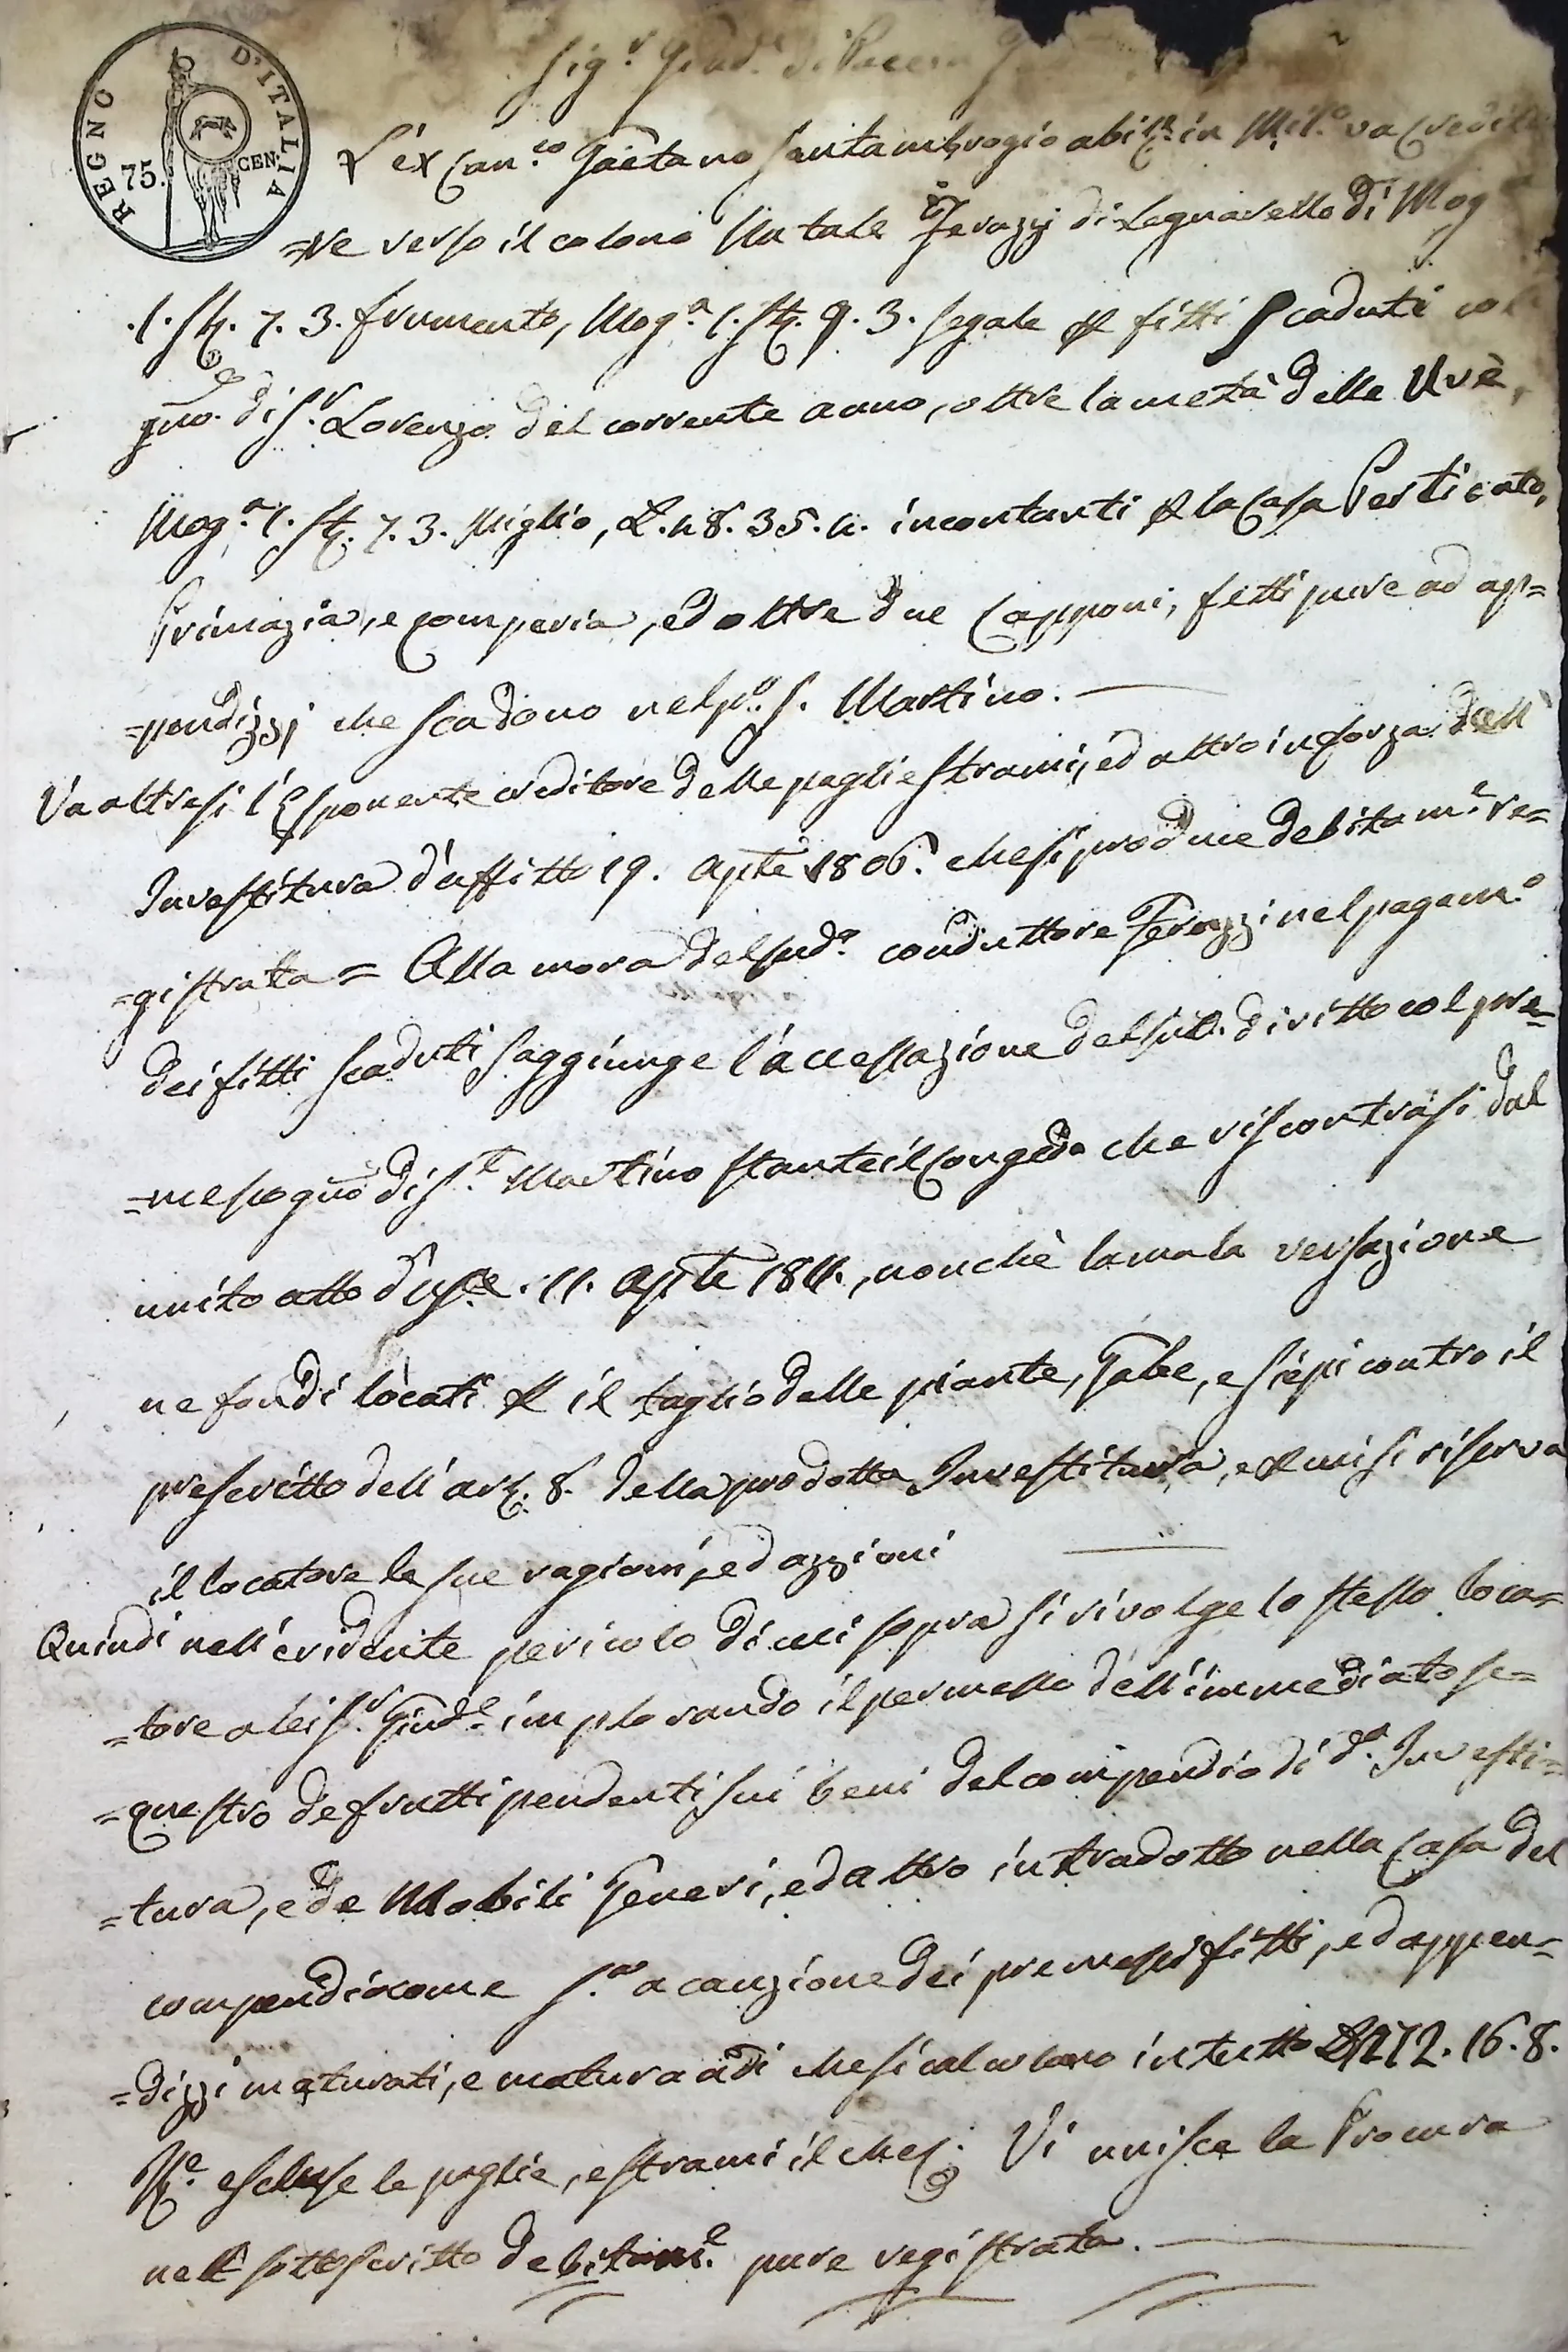 REGNO D'ITALIA
75. CEN.
Sig.r Giud.e di Pace
L'ex Can.co Gaetano Santambrogio abit.e in Mil.o va Credito
=re verso il colono Natale Ferazzi di Legnarello di Mog.a
1. St. 7. 3. frumento, Mog.a 1. St. 9. 3. segale per fitti scaduti col
gno. di S.r Lorenzo del corrente anno, oltre la metà delle Uve,
Mog.a 1. St. 7. 3. Miglio, L. 48. 35. 4. in contanti per la Casa Perticato,
Primazia, e Comperia, ed oltre due Capponi, fitti pure ad ap=
=pendizzj che scadono nel p.o S. Martino.
Va altresi l'Esponente creditore delle paglie strami, ed altro in forza dell'
Investitura d'affitto 19. Aple 1806. che si produce debitam.e re=
=gistrata = Alla mora del sud.o conduttore Ferazzi nel pagam.o
dei fitti scaduti s'aggiunge l'accessazione del sud. diritto col pre=
=messo gno di S.t Martino stante il Congedo che riscontrasi dal
unito atto d'Usc.e 11. Aple 1811., nonchè la mala versazione
ne fondi locati per il taglio delle piante, Gabe, e siepi contro il
prescritto dell'art. 8. della prodotta Investitura, e per cui si riserva
il locatore le sue ragioni, ed azzioni
Quindi nell'evidente pericolo di cui sopra si rivolge lo stesso loca=
=tore a lei S.r Giud.e implorando il permesso dell'immediato se=
=questro de frutti pendenti sui beni del compendio di d.a Investi=
=tura, e de Mobili Generi, ed altro intradotto nella Casa del
compendio come S.a a cauzione dei premessi fitti, ed appen=
=dizzi maturati, e matura adi che si calcolano in tutto 272. 16. 8.
escluse le paglie, e strami il che Vi unisce la Procura
nell sottoscritto debitam.e pure registrata.